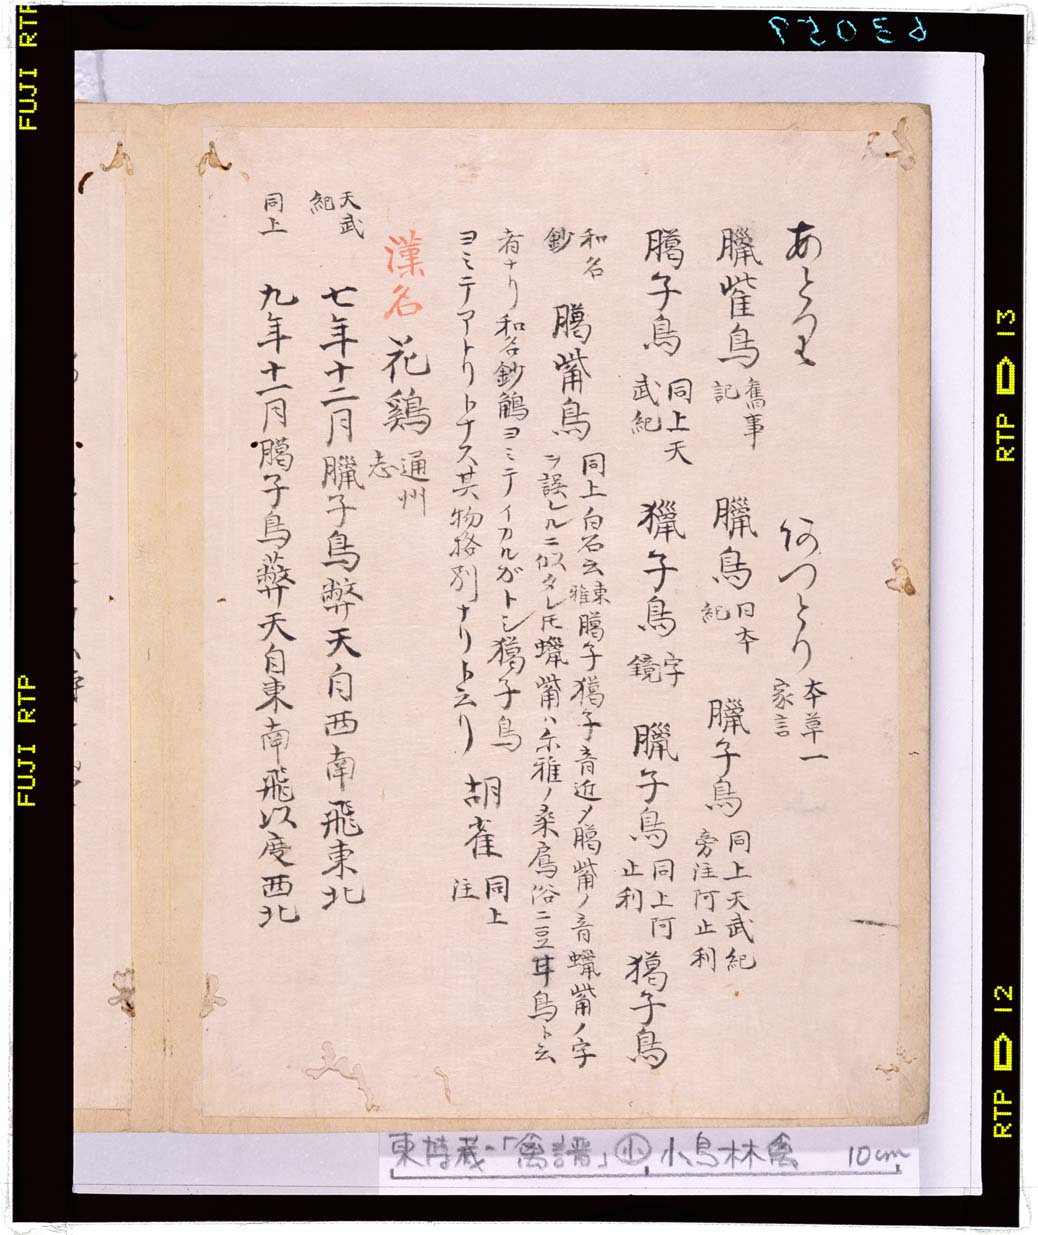 あとり
何つとり 本草一家言
臘觜鳥 舊事記 臘鳥 日本紀 臘子鳥 同上天武紀旁注阿止利
䳑子鳥 同上天武紀 獵子鳥 字鏡 臘子鳥 同上阿止利 獦子鳥
和名鈔 䳑觜鳥 同上白石云東雅䳑子獦子音近メ䳑觜ノ音蠟觜ノ字
ヲ誤レルニ似タレ𪜈蠟觜ハ尓雅ノ桑鳸俗ニ豆甘鳥ト云
者ナリ和名鈔鵤ヨミテイカルガトシ獦子鳥
ヨミテアトリトナス其物格別ナリト云リ 胡雀 同上注
漢名 花鷄 通州志
天武紀 七年十二月臘子鳥弊天自西南飛東北
同上 九年十一月䳑子鳥蔽天自東南飛以度西北
東博蔵「禽譜」小 小鳥林禽 10cm
63057
FUJI RTP
FUJI RTP
RTP 13
RTP 12